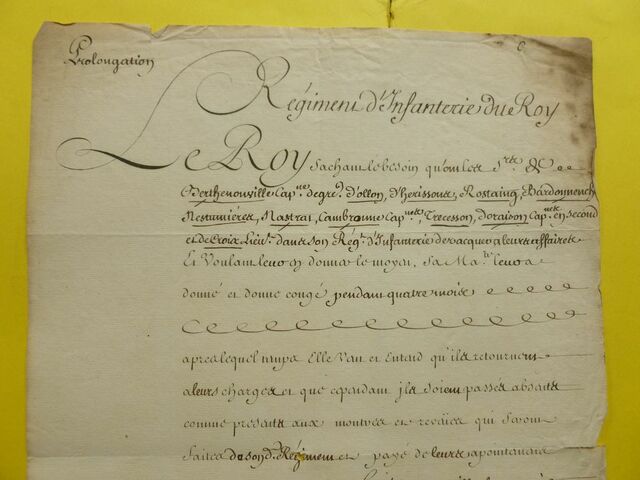 Prolongation
Régiment d'Infanterie du Roy
Le Roy Sachant le besoin qu'ont les Srs de
Berthenonville Capne de gre. d'ollon, d'herissons, Rostaing, Bardonnench
Nestumières, Nastrai, Cambronne Capnes, Trecesson, Doraison Capne en second
et de Croix Lieut. dans son Régt. d'Infanterie de vacquer a leurs affaires
Et Voulant leur en donner le moyen, Sa Maté. leur a
donné et donne congé pendant quatre mois
apres lequel temps Elle Veut et Entend qu'ils retournent
a leurs charges et que cependant ils soient passés absents
comme presents aux montres et reveües qui seront
faites de son d. Régiment et payé de leurs apointemens